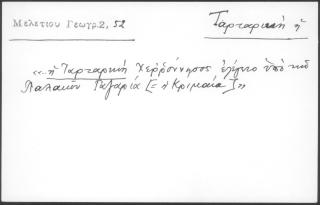 Μελετίου Γεωγρ. 2, 52
Ταρταρική ἡ
«..ἡ Ταρταρική Χερρσόνησος ἐλέγετο ὑπό τῶν
Παλαιῶν Γαζαρία [= ἡ Κριμαία]»